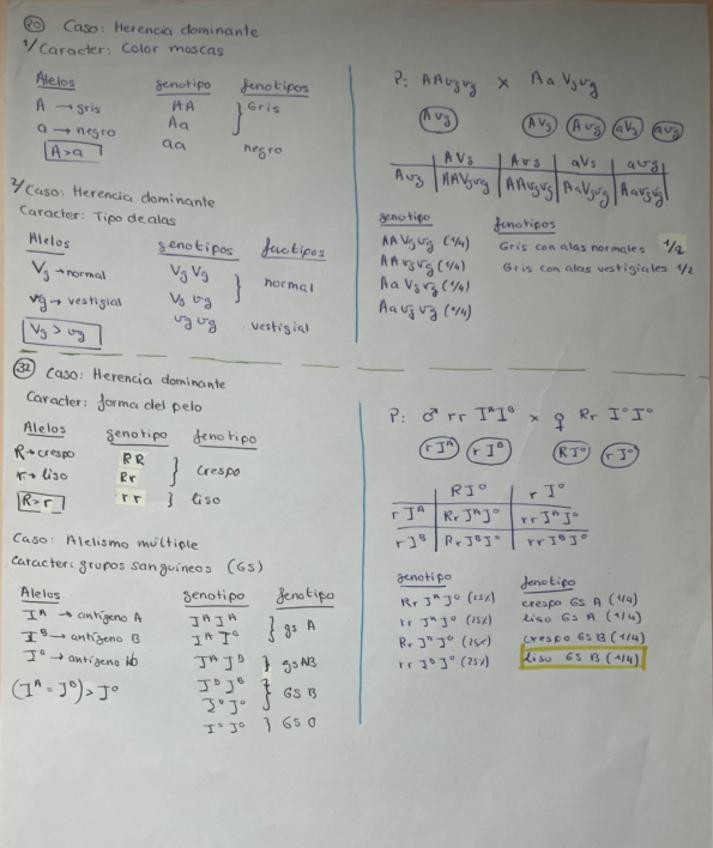 20 Caso: Herencia dominante
1/ Caracter: Color moscas
Alelos genotipo fenotipos
A → gris AA } Gris
a → negro Aa
A>a aa negro
2/ Caso: Herencia dominante
Caracter: Tipo de alas
Alelos genotipos
Vg → normal Vg Vg } normal
vg → vestigial Vg vg
Vg > vg vg vg vestigial
P: AAvgvg x AaVgvg
Avg AVg Avg aVg avg
AVg Avg aVg avg
Avg AAVgvg AAvgvg AaVgvg Aavgvg
genotipo fenotipos
AAVgvg (1/4) Gris con alas normales 1/2
AAvgvg (1/4) Gris con alas vestigiales 1/2
AaVgvg (1/4)
Aavgvg (1/4)
32 Caso: Herencia dominante
Caracter: forma del pelo
Alelos genotipo fenotipo
R → crespo RR } crespo
r → liso Rr
R>r rr } liso
Caso: Alelismo múltiple
Caracter: grupos sanguineos (GS)
Alelos genotipo fenotipo
Iᴬ → antígeno A IᴬIᴬ } gs A
Iᴮ → antígeno B IᴬI°
I° → antígeno No IᴬIᴮ } gs AB
(Iᴬ = Iᴮ) > I° IᴮIᴮ } GS B
IᴮI°
I°I° } GS O
P: ♂ rr IᴬIᴮ x ♀ Rr I°I°
rIᴬ rIᴮ RI° rI°
RI° rI°
rIᴬ RrIᴬI° rrIᴬI°
rIᴮ RrIᴮI° rrIᴮI°
genotipo fenotipo
RrIᴬI° (25%) crespo GS A (1/4)
rrIᴬI° (25%) liso GS A (1/4)
RrIᴮI° (25%) crespo GS B (1/4)
rrIᴮI° (25%) liso GS B (1/4)